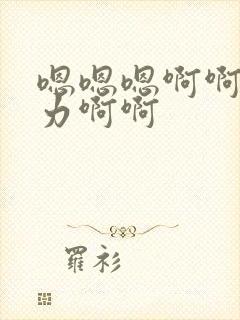 嗯嗯嗯啊啊
力啊啊
羅衫